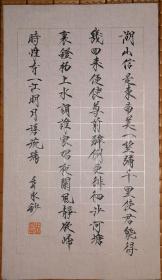 湖山信是東南美一望彌千里使君能得
幾回來便使尊前醉倒更徘徊沙河塘
裏燈初上水調誰家唱夜闌風靜欲歸
時惟有一江明月碧琉璃